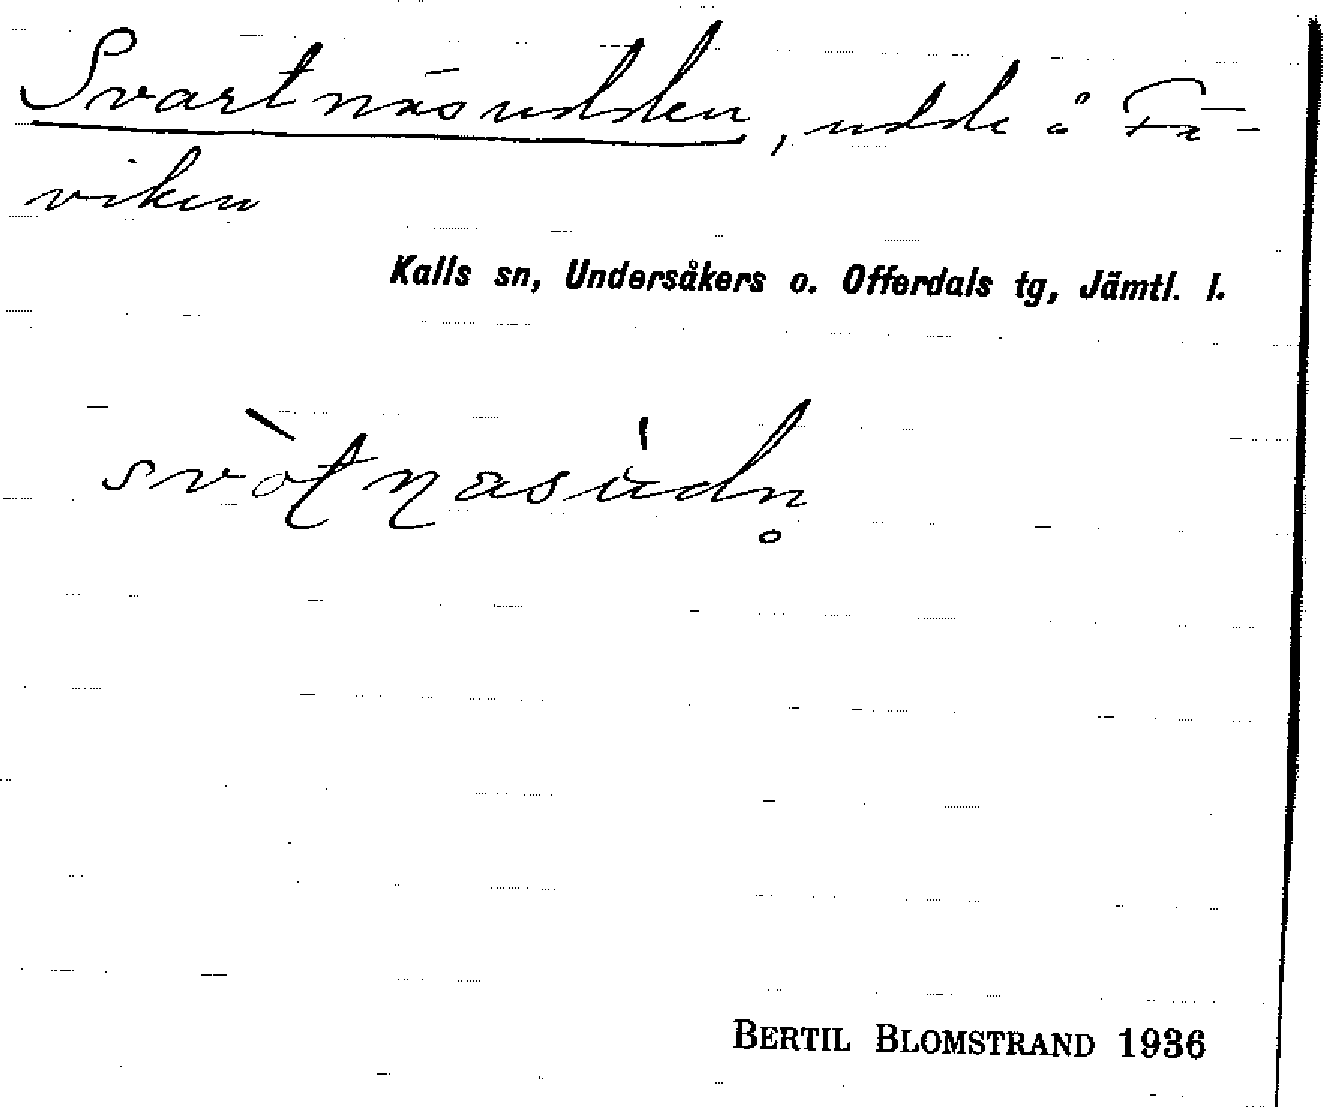 Svartnäsudden, udde i Fä-
viken
Kalls sn, Undersåkers o. Offerdals tg, Jämtl. l.
BERTIL BLOMSTRAND 1936